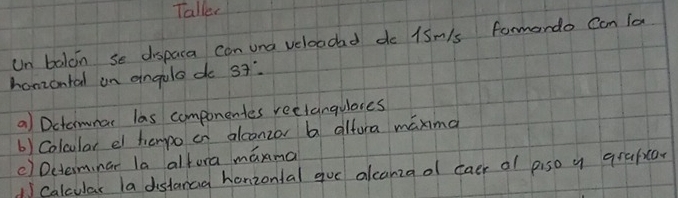 Taller
Un balón se dispara con una velocidad de 15m/s formando con la
horizontal un angulo de 37°.
a) Determinar las componentes rectangulares
b) Calcular el tiempo en alcanzar la altura máxima
c) Determinar la altura máxima
d) Calcular la distancia horizontal que alcanza al caer al piso y graficar